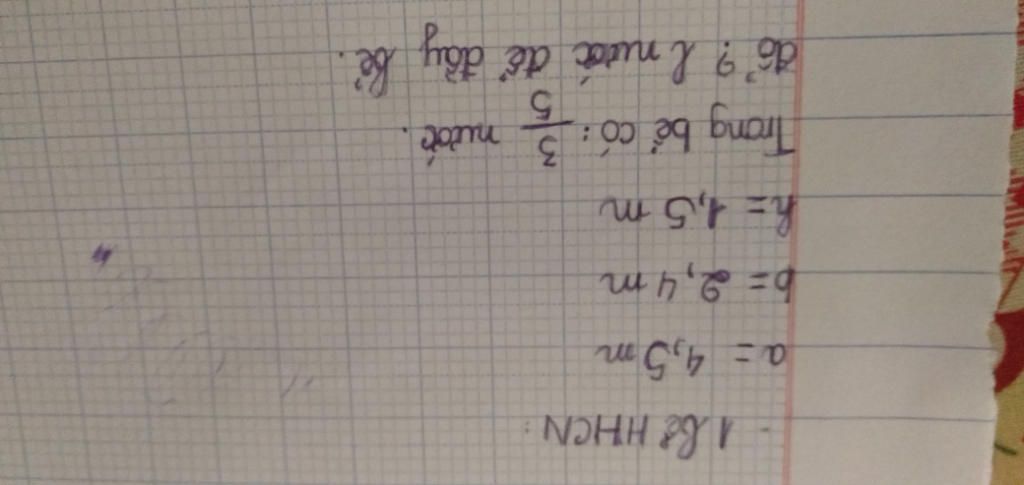 1 bể HHCN:
a = 4,5 m
b = 2,4 m
h = 1,5 m
Trong bể có: 3/5 nước.
đổ ? l nước để đầy bể.